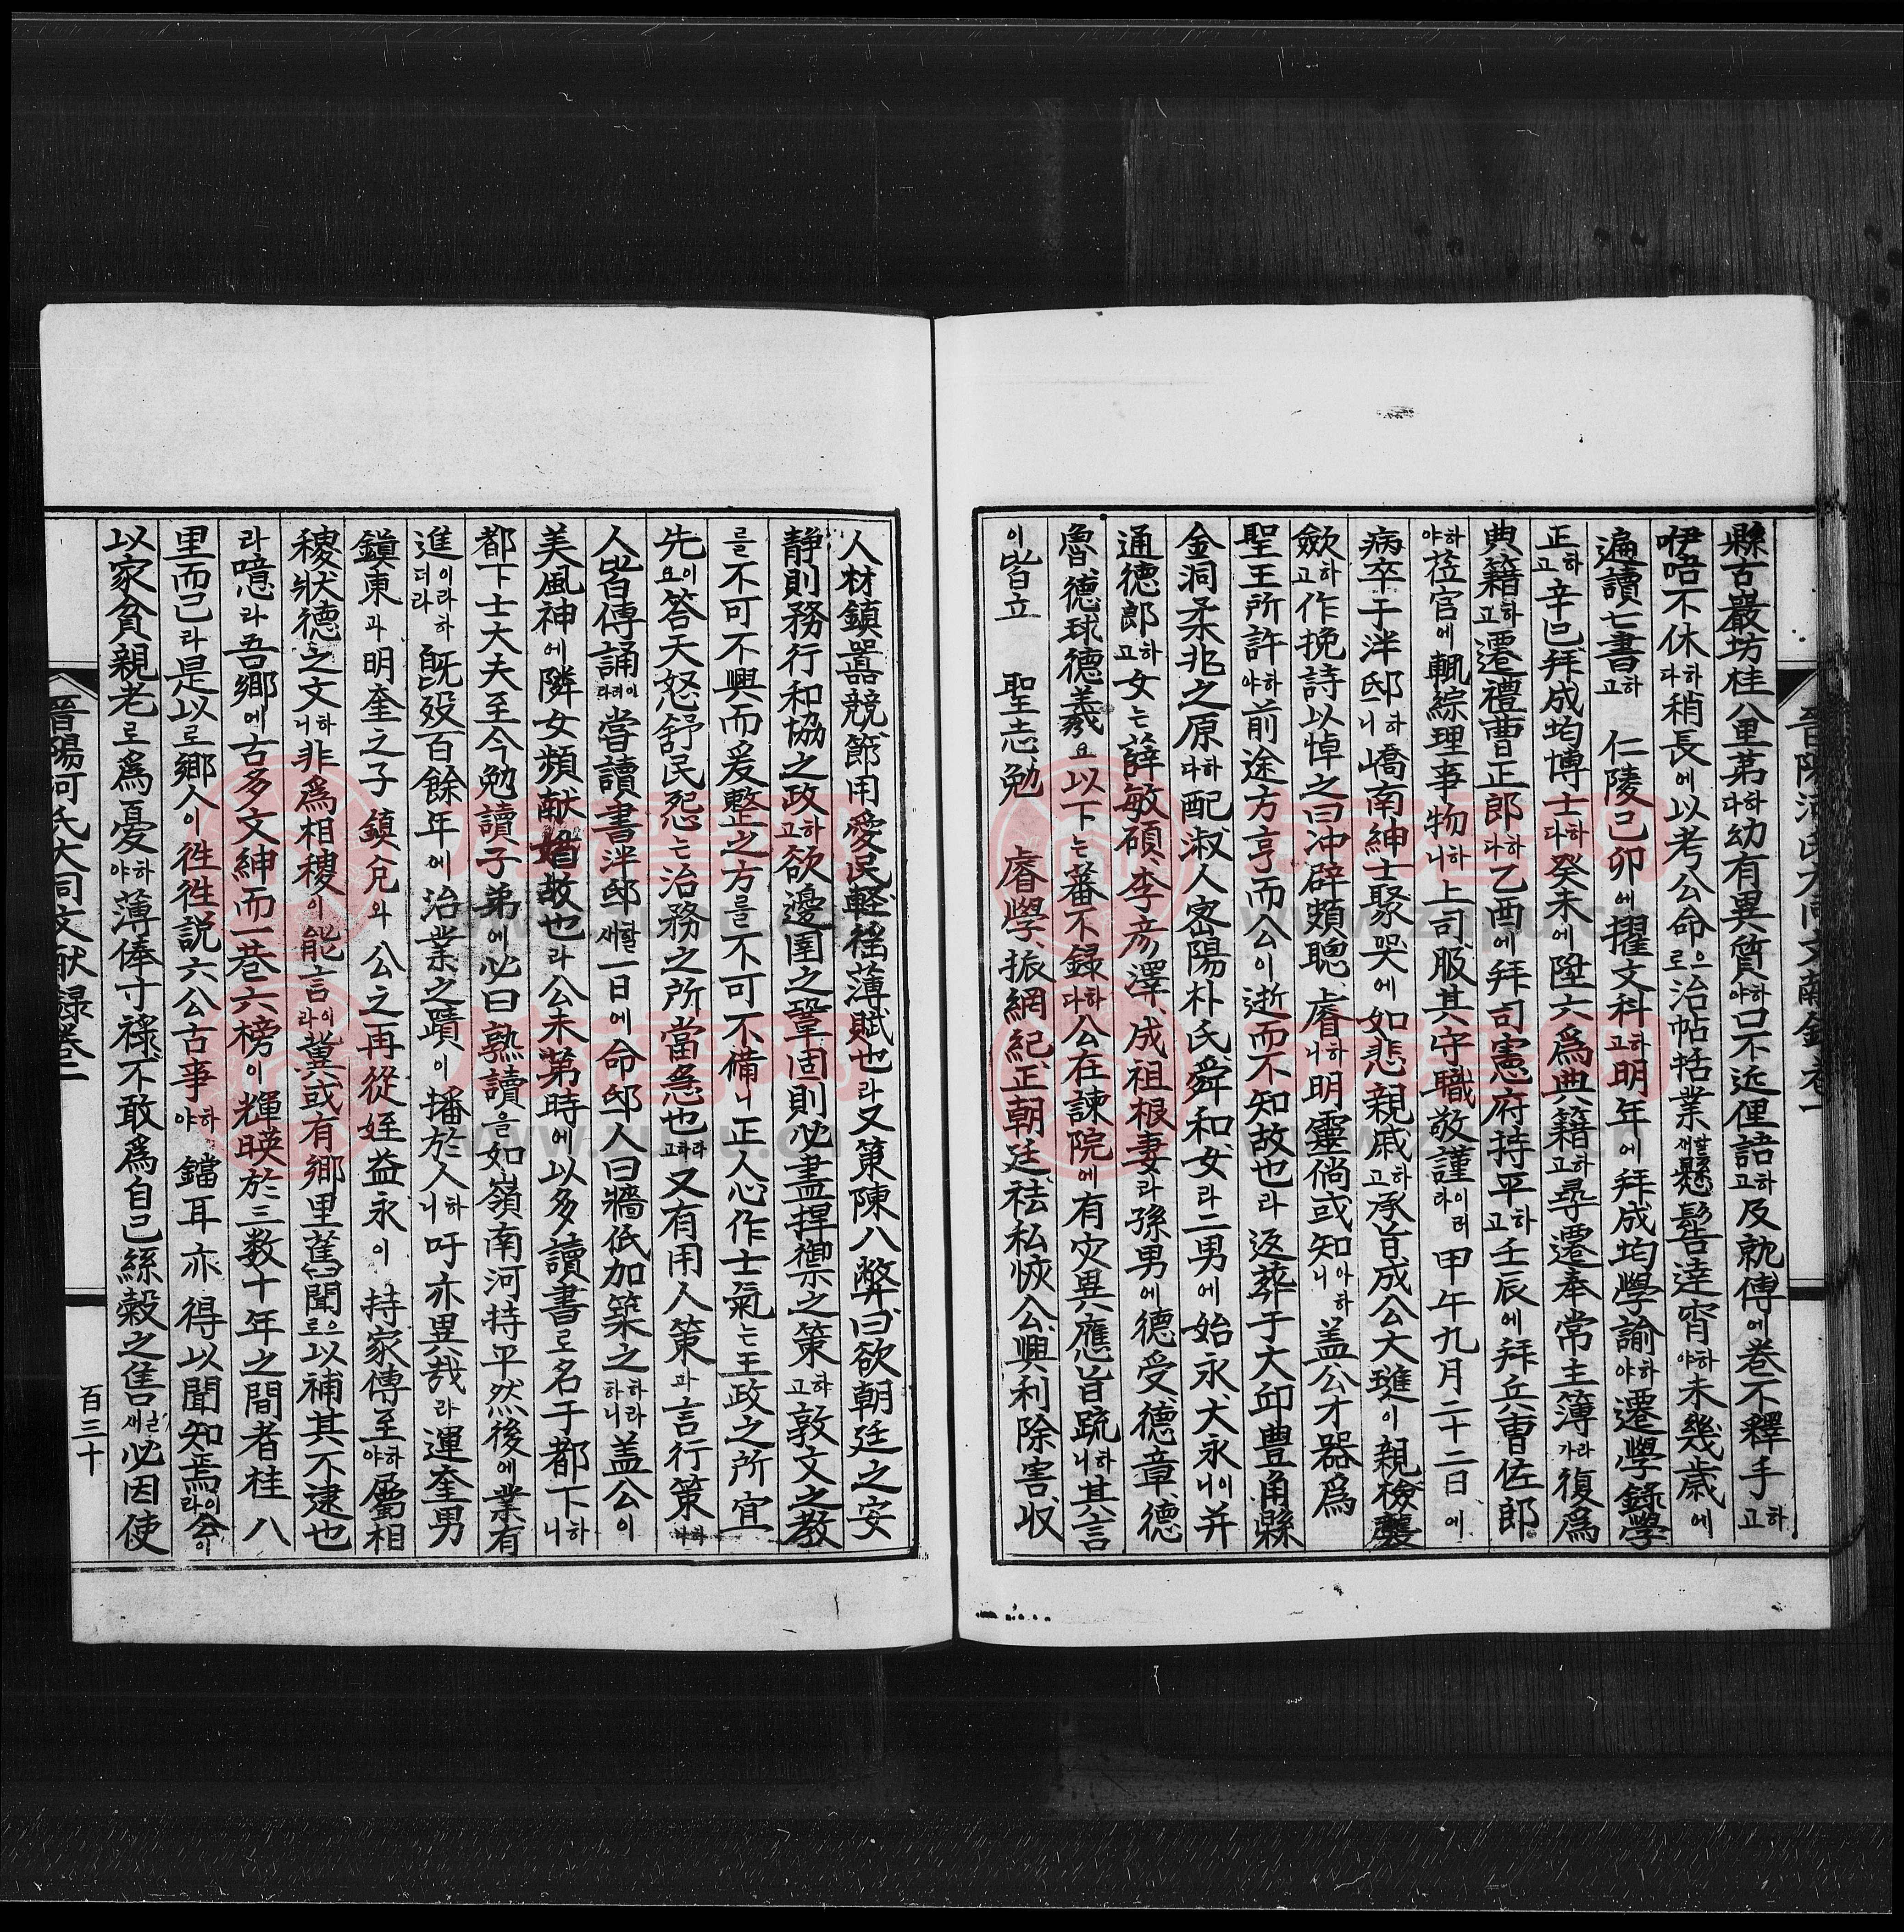 晉陽河氏大同文獻錄卷二
縣古巖坊桂八里第하다幼有異質하야口不近俚語하고及就傅에卷不釋手하고
咿唔不休하다稍長에以考公命으로治帖括業할새懸髻達宵하야未幾歲에
遍讀七書하고 仁陵己卯에擢文科하고明年에拜成均學諭하야遷學錄學
正하고辛巳拜成均博士하다癸未에陞六爲典籍하고尋遷奉常主簿라가復爲
典籍하고遷禮曹正郎하다乙酉에拜司憲府持平하고壬辰에拜兵曹佐郎
하야莅官에輒綜理事物하니上司服其守職敬謹이러라甲午九月二十二日에
病卒于泮邸하니嶠南紳士聚哭에如悲親戚하고承旨成公大璡이親檢襲
歛하고作挽詩以悼之曰冲辟頗聰睿하니明靈倘或知아하니盖公才器爲
聖王所許하야前途方亨而公이逝而不知故也라返葬于大邱豊角縣
金洞柔兆之原하다配淑人密陽朴氏舜和女라二男에始永犬永이니幷
通德郎하고女는薛敏碩李彦澤成祖根妻라孫男에德受德章德
魯德球德義요以下는蕃不錄하다公在諫院에有灾異應旨疏하니其言
이皆立 聖志勉 睿學振網紀正朝廷祛私恢公興利除害收
人材鎭囂競節用愛民輕徭薄賦也라又策陳八弊曰欲朝廷之安
靜則務行和協之政하고欲邊圉之鞏固則必盡捍禦之策하고敦文之敎
를不可不興而爰整之方를不可不備니正人心作士氣는王政之所宜
先이요答天怒舒民怨는治務之所當急也라하고又有用人策과言行策하니
人皆傳誦이러라嘗讀書泮邸할새一日에命邸人曰牆低加築之하라하니盖公이
美風神에隣女頻献媚故也라公未第時에以多讀書로名于都下하니
都下士大夫至今勉讀子弟에必曰熟讀을如嶺南河持平然後에業有
進이라하더라旣歿百餘年에治業之蹟이播於人하니吁亦異哉라運奎男
鎭東과明奎之子 鎭兌와公之再從姪益永이 持家傳至하야屬相
稷狀德之文하니非爲相稷이能言이라冀或有鄕里舊聞으로以補其不逮也
라噫라吾鄕에古多文紳而一巷六榜이輝暎於三数十年之間者桂八
里而已라是以로鄕人이徃徃說六公古事하야鐺耳亦得以聞知焉이라公이
以家貧親老로爲憂하야薄俸寸祿不敢爲自己絲穀之售글새必因使
晉陽河氏大同文献錄卷二
百三十